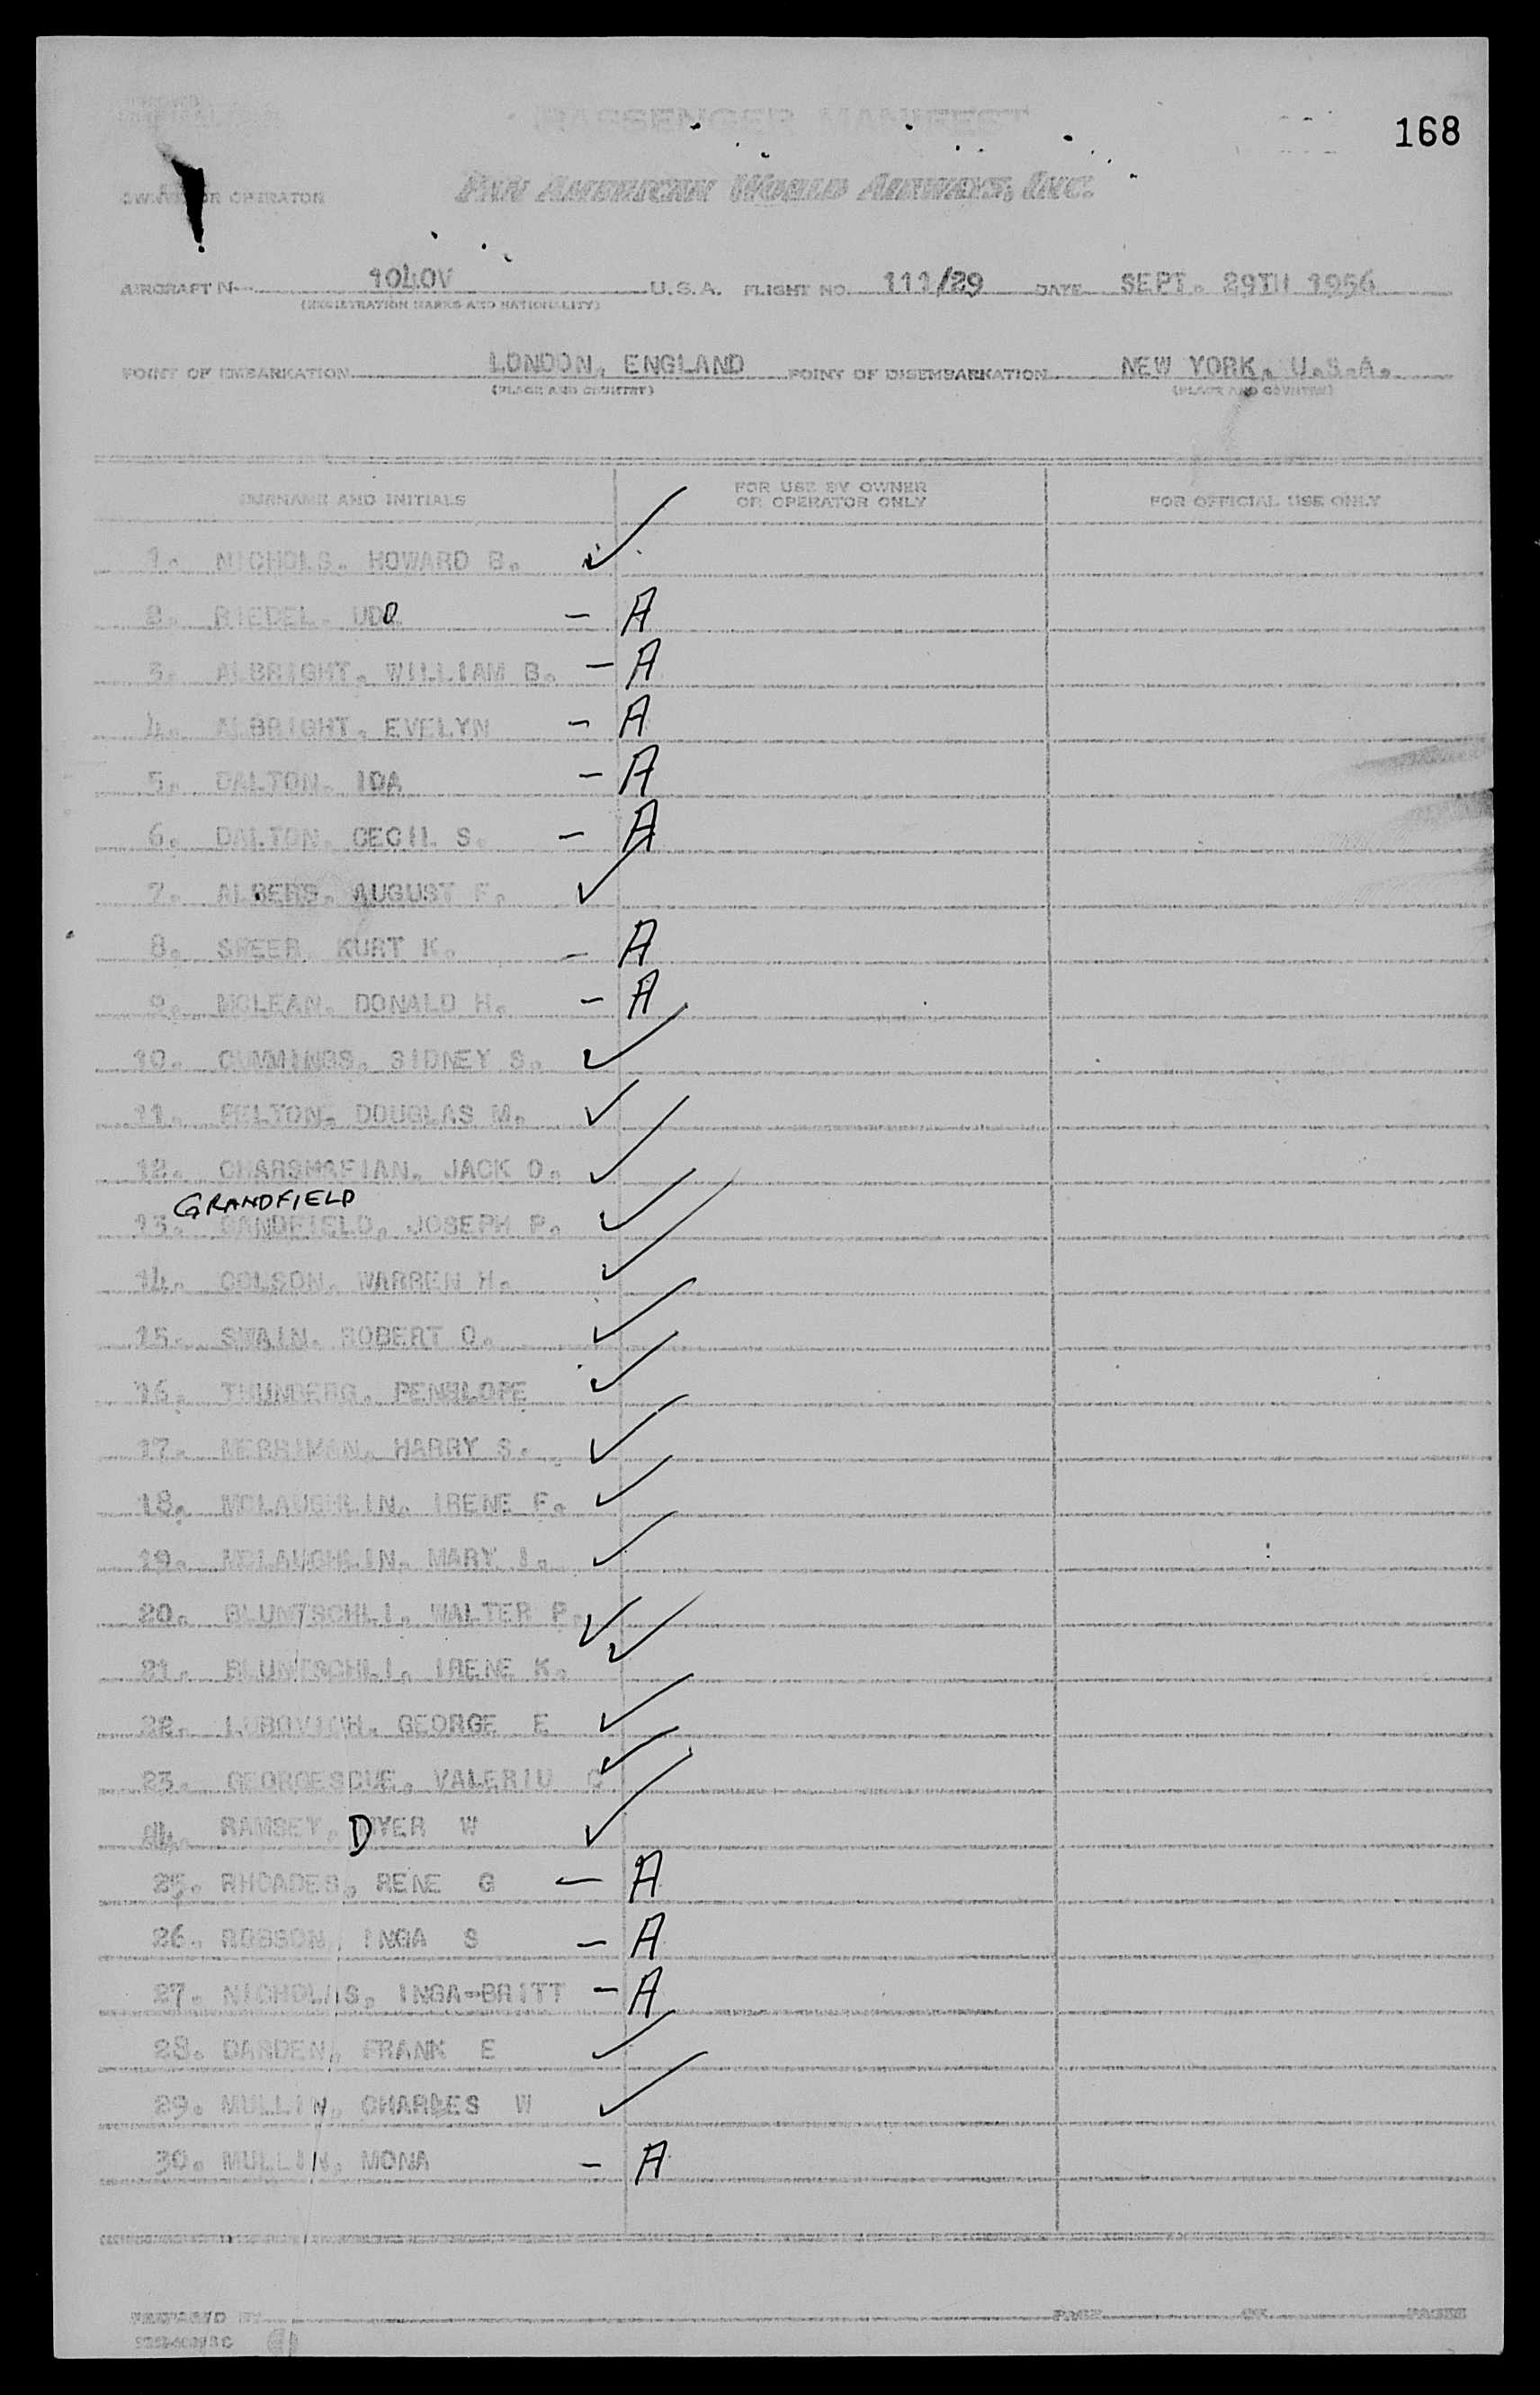 PASSENGER MANIFEST
168
OWNER OR OPERATOR PAN AMERICAN WORLD AIRWAYS, INC.
AIRCRAFT N 1040V U.S.A. FLIGHT NO. 111/29 DATE SEPT. 29TH 1956
(REGISTRATION MARKS AND NATIONALITY)
POINT OF EMBARKATION LONDON, ENGLAND POINT OF DISEMBARKATION NEW YORK, U.S.A.
(PLACE AND COUNTRY) (PLACE AND COUNTRY)
SURNAME AND INITIALS FOR USE BY OWNER OR OPERATOR ONLY FOR OFFICIAL USE ONLY
1. NICHOLS, HOWARD B. ✓
2. RIEDEL, UDO – A
3. ALBRIGHT, WILLIAM B. – A
4. ALBRIGHT, EVELYN – A
5. DALTON, IDA – A
6. DALTON, CECIL S. – A
7. ALBERS, AUGUST F. ✓
8. SPEER, KURT K. – A
9. MCLEAN, DONALD H. – A
10. CUMMINGS, SIDNEY S. ✓
11. FELTON, DOUGLAS M. ✓
12. CHARSHAFIAN, JACK O. ✓
GRANDFIELD
13. GANDFIELD, JOSEPH P. ✓
14. COLSON, WARREN H. ✓
15. SWAIN, ROBERT O. ✓
16. THUNBERG, PENELOPE ✓
17. MERRIMAN, HARRY S. ✓
18. MCLAUGHLIN, IRENE F. ✓
19. MCLAUGHLIN, MARY I. ✓
20. BLUNTSCHLI, WALTER P. ✓
21. BLUNTSCHLI, IRENE K. ✓
22. LUBOVICH, GEORGE E ✓
23. GEORGESCUE, VALERIU C ✓
24. RAMSEY, DYER W ✓
25. RHOADES, RENE G – A
26. ROBSON, INGA S – A
27. NICHOLAS, INGA-BRITT – A
28. DARDEN, FRANK E ✓
29. MULLIN, CHARLES W ✓
30. MULLIN, MONA – A
PREPARED BY PAGE OF PAGES